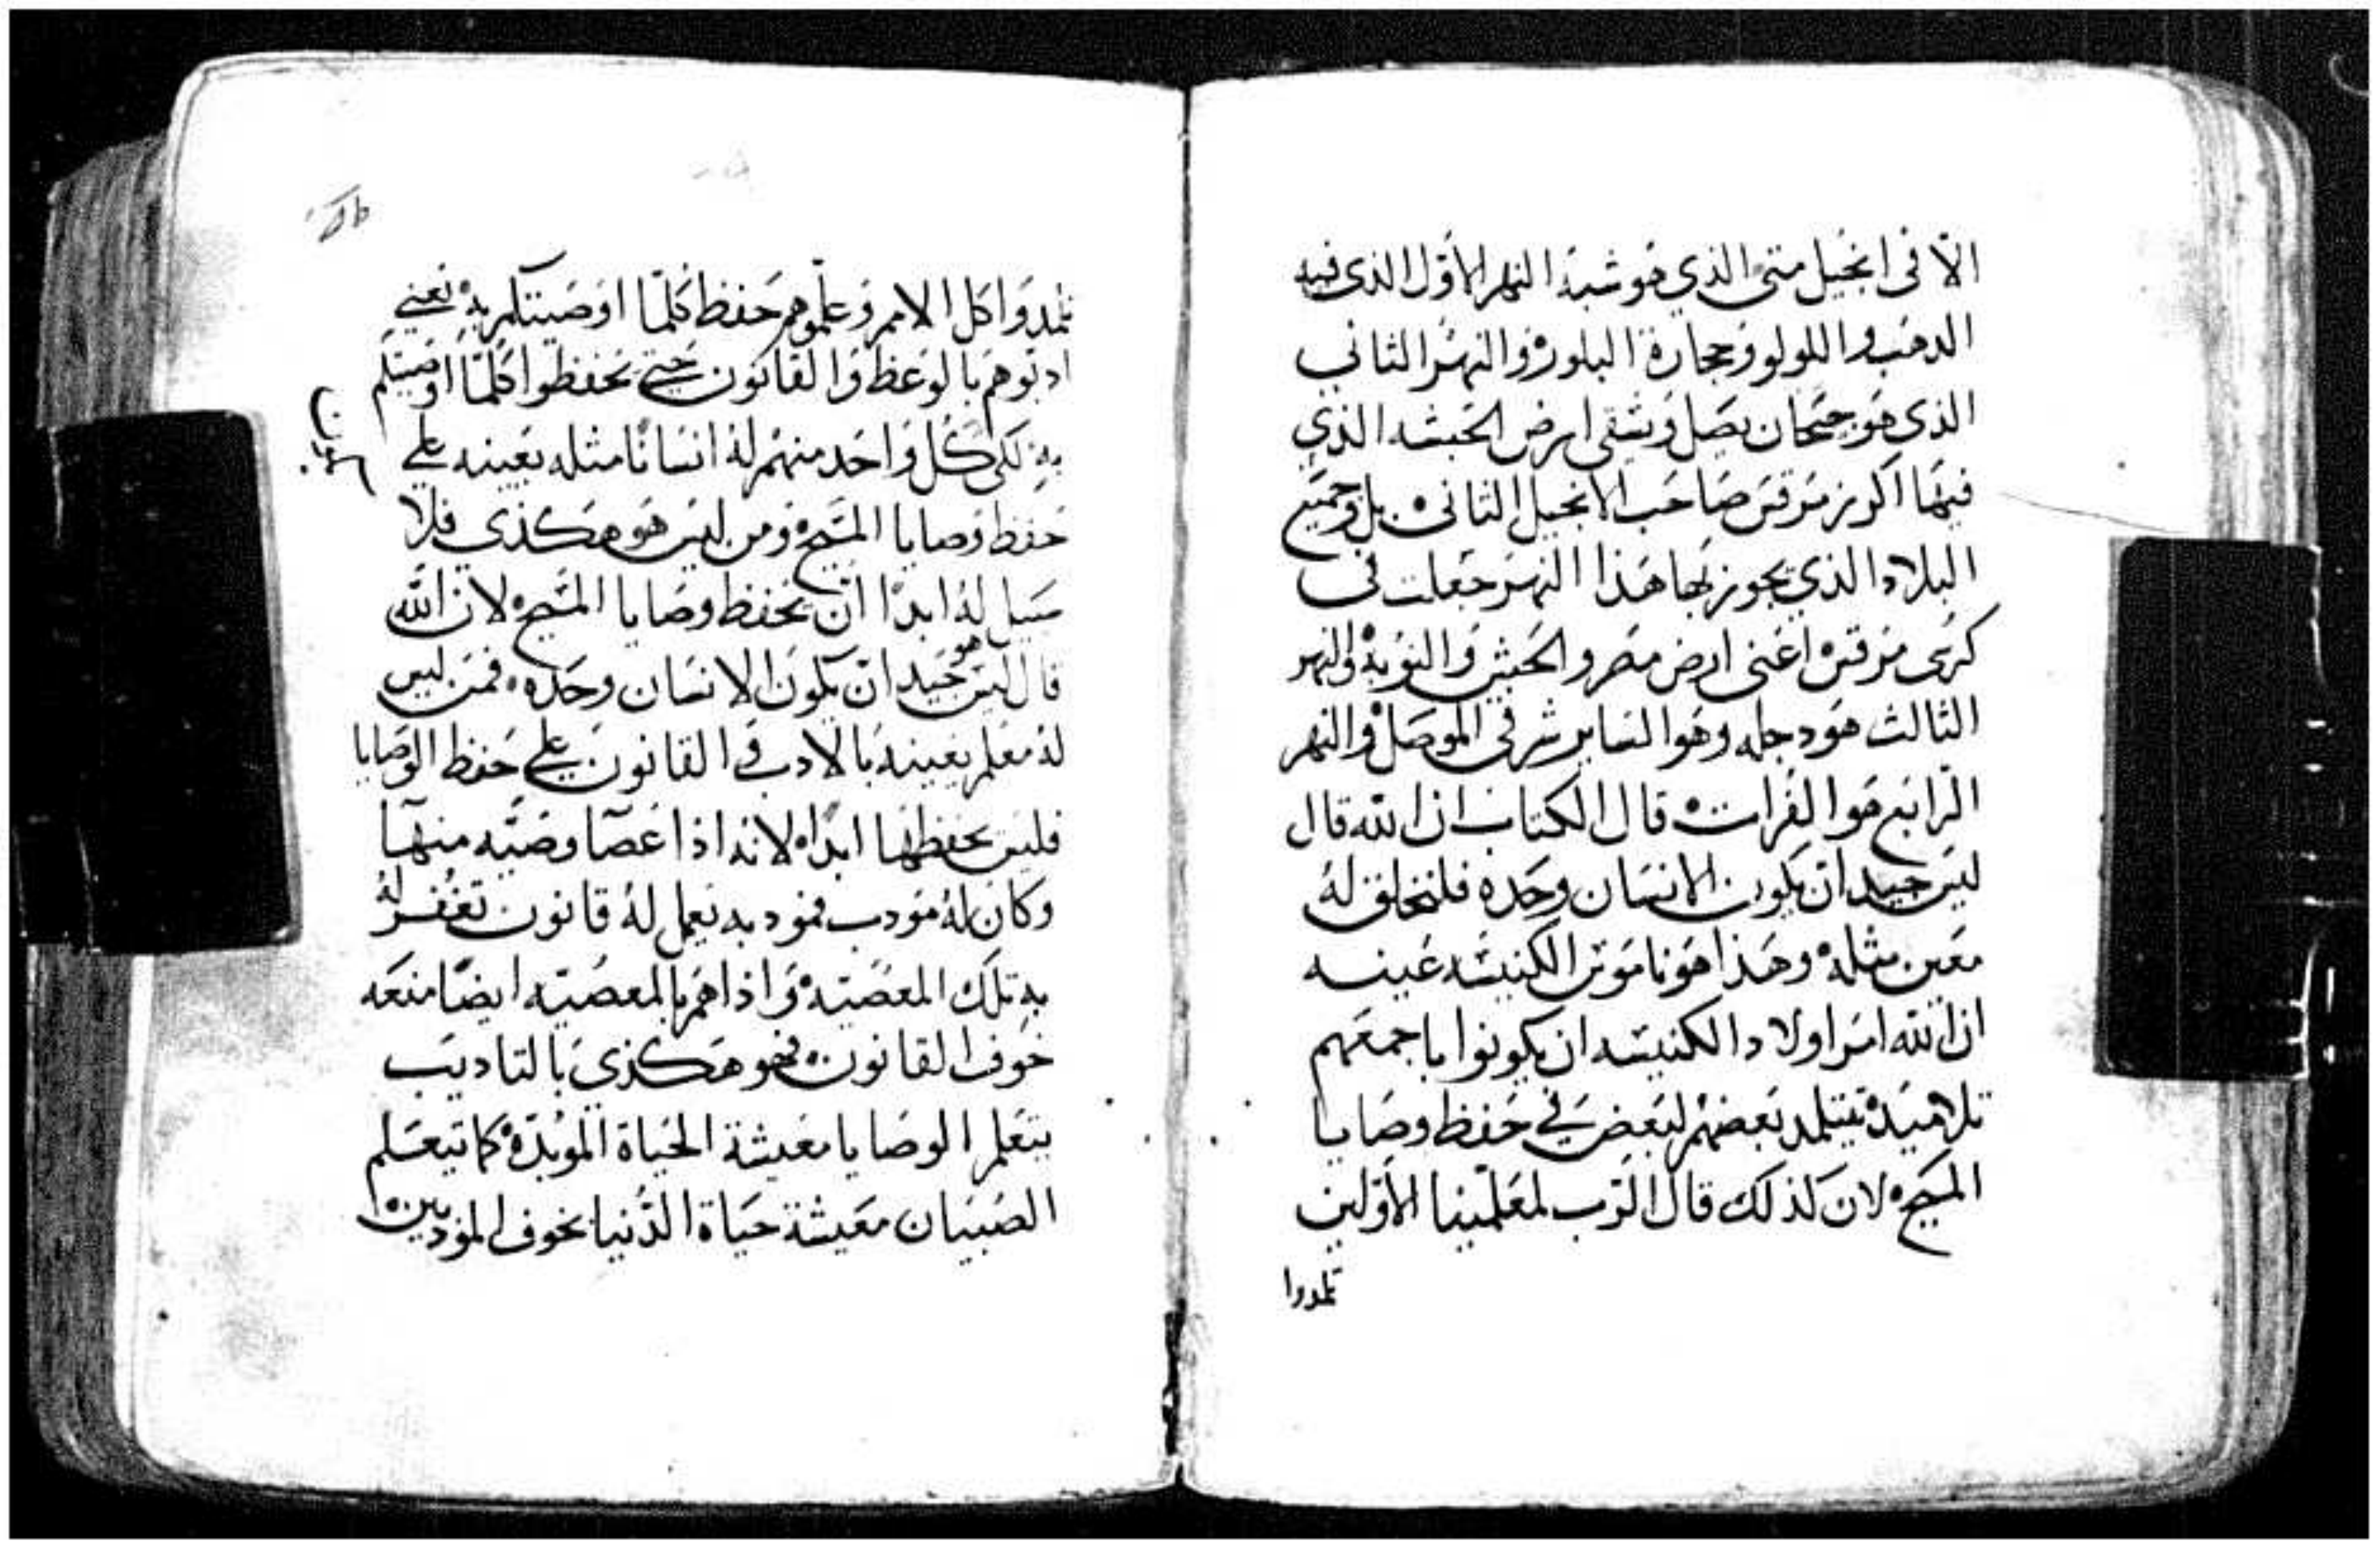 الاّ فى انجيل متى الذي هو شبة النهر الاوّل الذى فيه
الدهب واللولو وحجارة البلور۰ والنهر الثاني
الذى هو جيحان يصل ويسقى ارض الحبشه الذي
فيها اكرز مرقس صاحب الانجيل الثانى۰ بل وجميع
البلاد الذي يجوز بها هذا النهر جعلت فى
كرسى مرقس۰ اعنى ارض مصر والحبش والنوبة۰ والنهر
الثالث هو دجله وهو الساير شرقى الموصل۰ والنهر
الرابع هو الفرات۰ قال الكتاب ان الله قال
ليس جيد ان يكون الانسان وحده فلنخلق له
معين مثله۰ وهذا هو ناموس الكنيسه عينه
ان الله امر اولاد الكنيسه ان يكونوا باجمعهم
تلاميد۰ يتتلمد بعضهم لبعض في حفظ وصايا
المسيح۰ لان لذلك قال الرب لمعلمينا الاوّلين
تلمدوا
تلمدوا كل الامم وعلموهم حفظ كلما اوصيتكم به۰ يعني
ادبوهم بالوعظ والقانون حتي يحفظوا كلما اوصيتكم
به۰ لكى كل واحد منهم له انسانًا مثله يعينه علي
حفظ وصايا المسيح۰ ومن ليس هو هكذي فلا
سبيل له ابدًا ان يحفظ وصايا المسيح۰ لان الله
قال ليس هو جيد ان يكون الانسان وحده۰ فمن ليس
له معلم يعينه بالادب والقانون علي حفظ الوصايا
فليس يحفظها ابدًا۰ لانه اذا عصا وصيّه منها
وكان له مودب فمودبه يعمل له قانون تغفر له
به تلك المعصية۰ واذا هم بالمعصيه ايضًا منعه
خوف القانون۰ فهو هكذي بالتاديب
يتعلم الوصايا معيشة الحياة الموبدّة۰ كما تيعلم
الصبيان معيشة حياة الدّنيا بخوف المودبين۰